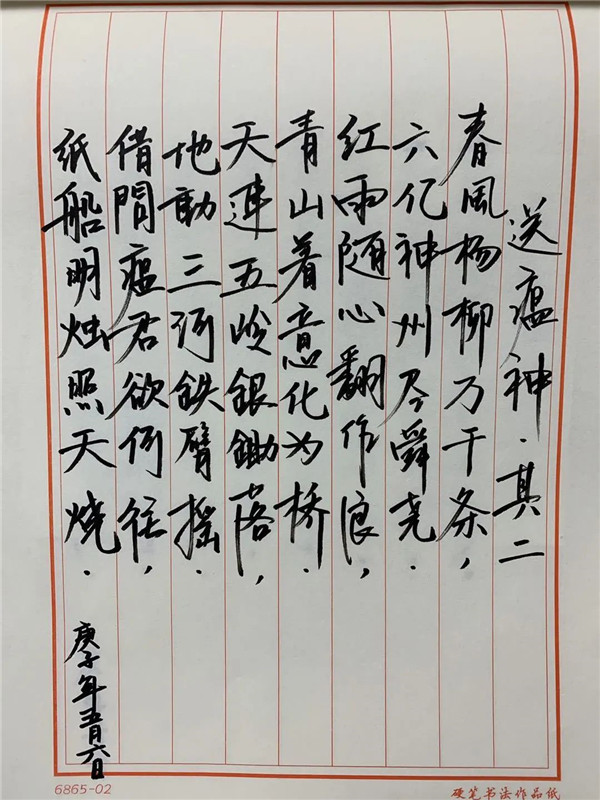 送瘟神·其二
春風杨柳万千条，
六亿神州尽舜尧.
红雨随心翻作浪，
青山着意化为桥.
天连五岭银鋤落，
地動三河铁臂摇.
借問瘟君欲何往，
纸船明烛照天烧.
庚子年五月六日
6865-02
硬笔书法作品纸